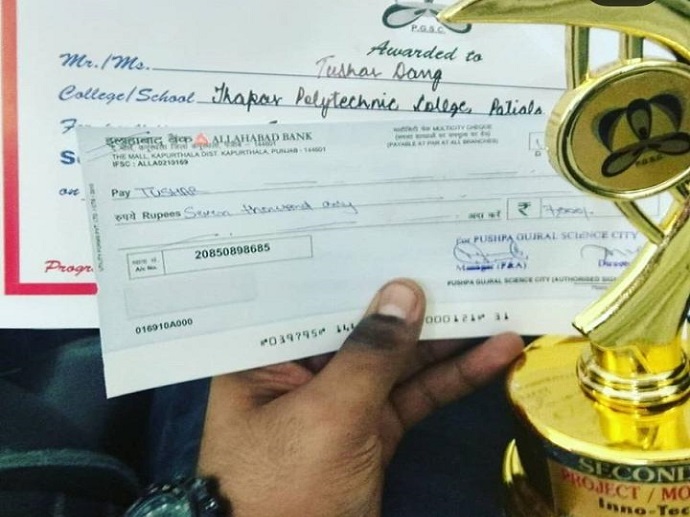 P.G.S.C.
Awarded to
Mr./Ms. Tushar Dang
College/School Thapar Polytechnic College, Patiala
इलाहाबाद बैंक ALLAHABAD BANK
THE MALL, KAPURTHALA DIST. KAPURTHALA, PUNJAB - 144601
IFSC : ALLA0210169
मल्टीसिटी चेक MULTICITY CHEQUE
(PAYABLE AT PAR AT ALL BRANCHES)
on
Pay TUSHAR
रुपये Rupees Seven thousand only
अदा करें ₹ 7,000/-
खाता सं.
A/c No. 20850898685
For PUSHPA GUJRAL SCIENCE CITY
Manager (F&A)
PUSHPA GUJRAL SCIENCE CITY (AUTHORISED
Progr
016910A000
⑈039795⑈ 000121⑈ 31
P.G.S.C.
SECOND
PROJECT / MO
Inno-Tec